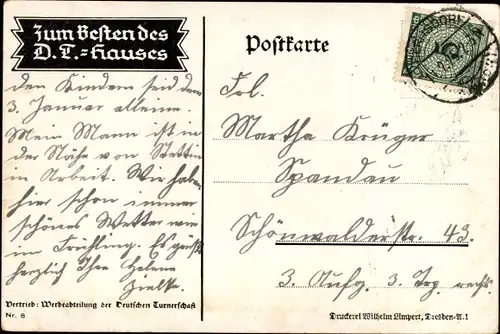 Zum Besten des
D. T.=Hauses
Postkarte
den Kindern seid dem
3. Januar alleine.
Mein Mann ist in
der Nähe von Stettin
in Arbeit. Wir haben
hier schon immer
schönes Wetter wie
im Frühling. Es grüßt
herzlich Ihre Helene
Zielke.
Frl.
Martha Krüger
Spandau
Schönwalderstr. 43.
3. Aufg. 3. Trp. rechts
Vertrieb: Werbeabteilung der Deutschen Turnerschaft
Nr. 8
Druckerei Wilhelm Limpert, Dresden-A.1